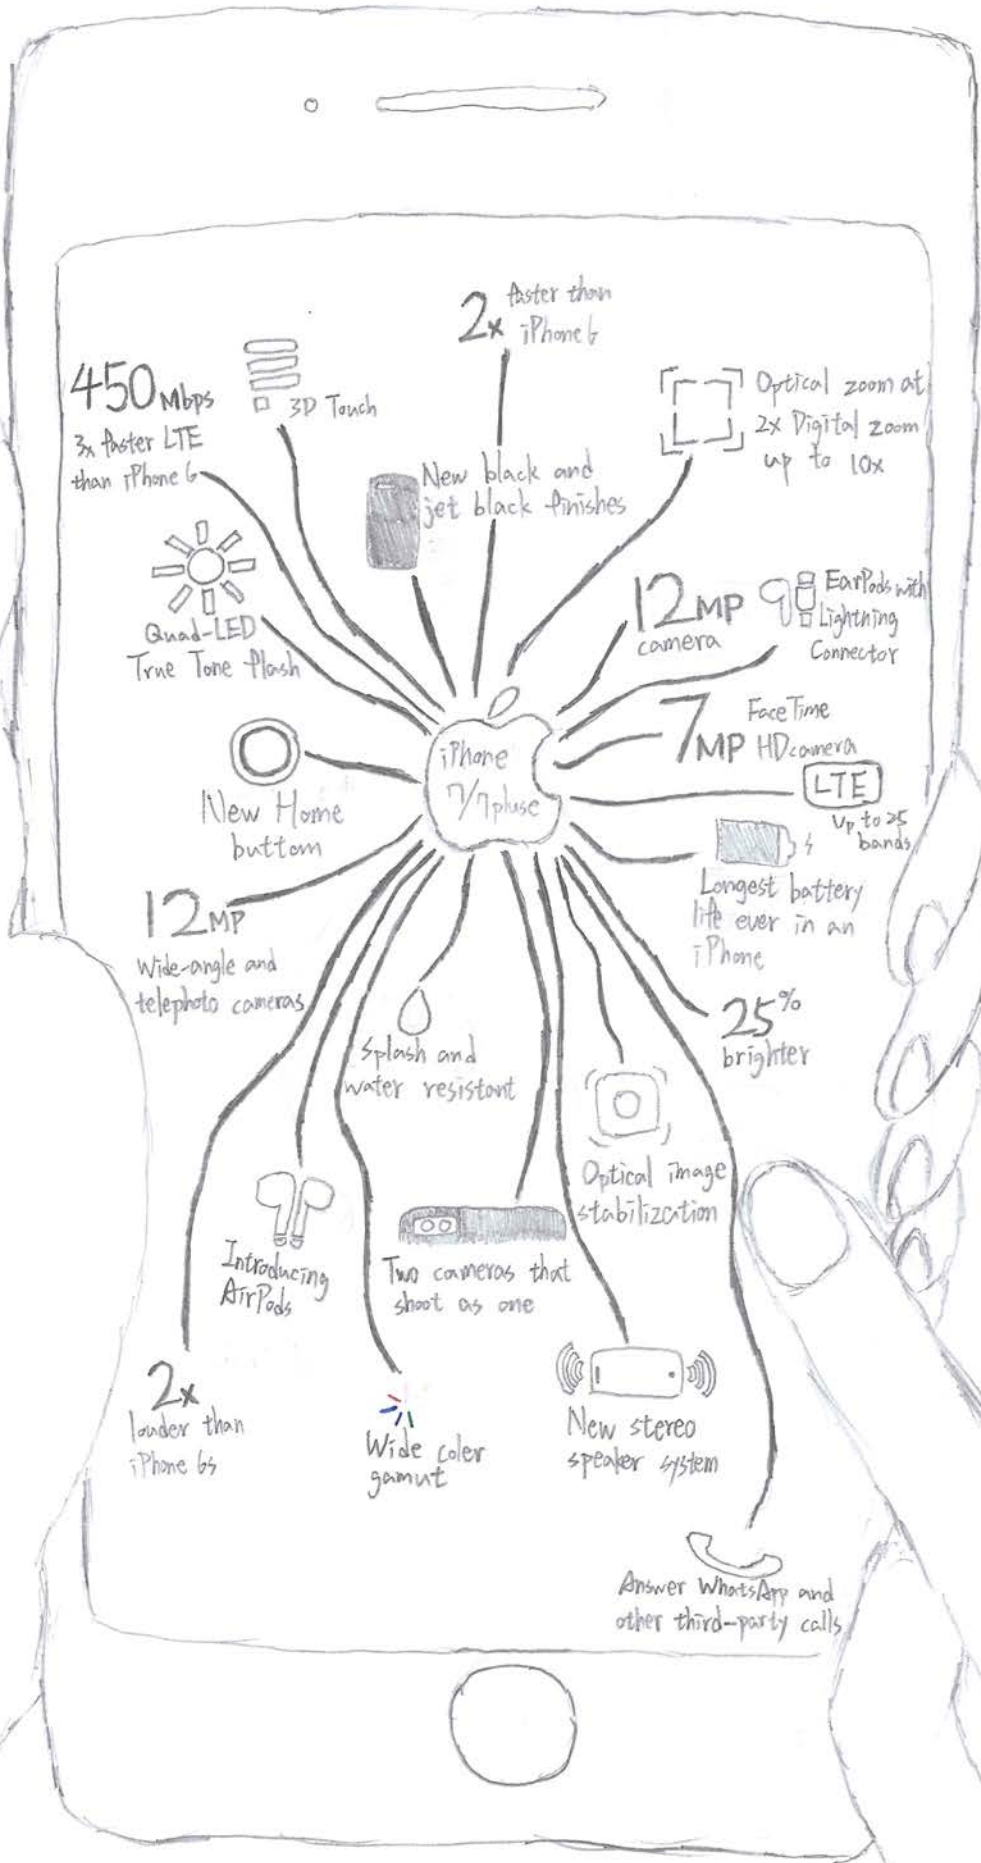 2x faster than
iPhone 6
450 Mbps
3x faster LTE
than iPhone 6
3D Touch
Optical zoom at
2x Digital zoom
up to 10x
New black and
jet black finishes
Quad-LED
True Tone flash
12MP
camera
EarPods with
Lightning
Connector
7MP
FaceTime
HD camera
iPhone
7/7pluse
New Home
buttom
LTE
Up to 25
bands
Longest battery
life ever in an
iPhone
12MP
Wide-angle and
telephoto cameras
25%
brighter
Splash and
water resistant
Optical image
stabilization
Introducing
AirPods
Two cameras that
shoot as one
2x
louder than
iPhone 6s
Wide coler
gamut
New stereo
speaker system
Answer WhatsApp and
other third-party calls